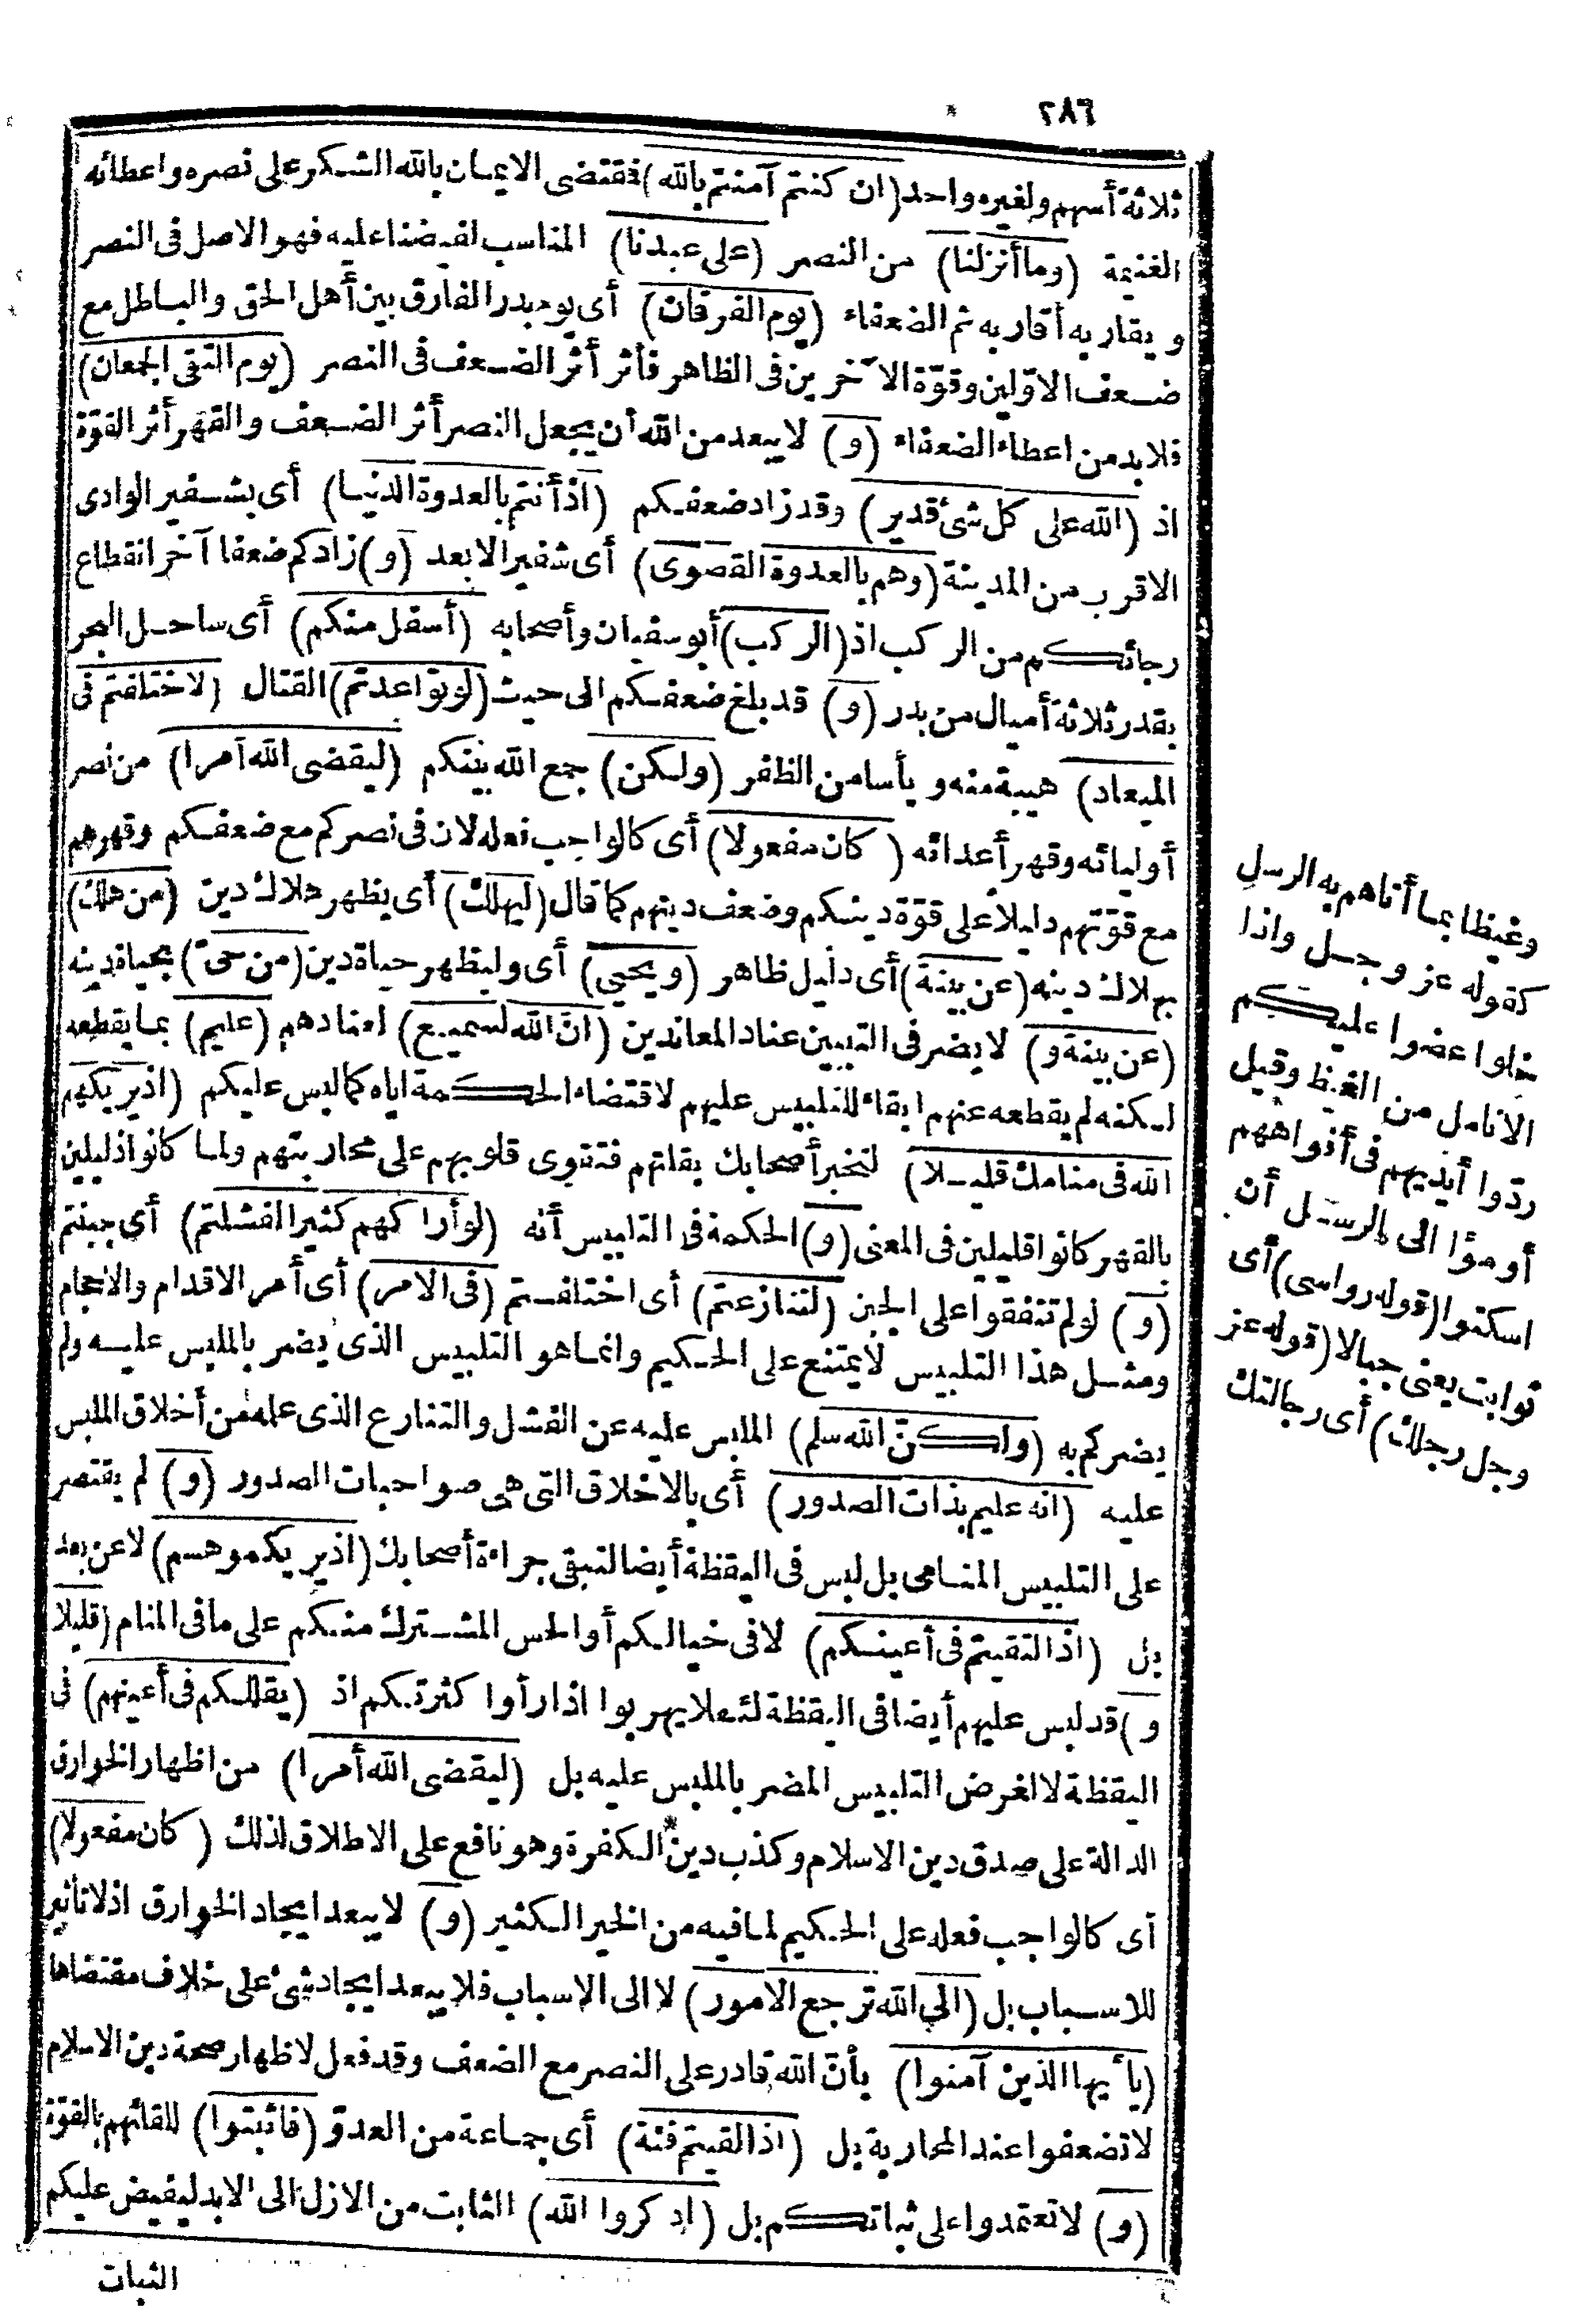 ٢٨٦
ثلاثة أسهم ولغيره واحد (ان كنتم آمنتم بالله) فقتضى الايمان بالله الشكر على نصره واعطائه
الغنيمة (وما أنزلنا) من النصر (على عبدنا) المناسب لفيضنا عليه فهو الاصل فى النصر
ويقاربه أقاربه ثم الضعفاء (يوم الفرقان) أى يوم بدر الفارق بين أهل الحق والباطل مع
ضعف الاوّلين وقوّة الآخرين فى الظاهر فأثر أثر الضعف فى النصر (يوم التقى الجمعان)
فلابد من اعطاء الضعفاء (و) لا يبعد من الله أن يجعل النصر أثر الضعف والقهر أثر القوّة
اذ (الله على كل شئ قدير) وقد زاد ضعفكم (اذ أنتم بالعدوة الدنيا) أى بشفير الوادى
الاقرب من المدينة (وهم بالعدوة القصوى) أى شفير الابعد (و) زادكم ضعفا آخر انقطاع
رجائكم من الركب اذ (الركب) أبو سفيان وأصحابه (أسفل منكم) أى ساحل البحر
بقدر ثلاثة أميال من بدر (و) قد بلغ ضعفكم الى حيث (لو تواعدتم) القتال (لاختلفتم فى
الميعاد) هيبة منه ويأسا من الظفر (ولكن) جمع الله بينكم (ليقضى الله أمرا) من نصر
أوليائه وقهر أعدائه (كان مفعولا) أى كالواجب فعله لان فى نصركم مع ضعفكم وقهرهم
مع قوّتهم دليلا على قوّة دينكم وضعف دينهم كما قال (ليهلك) أى يظهر هلاك دين (من هلك)
بهلاك دينه (عن بينة) أى دليل ظاهر (ويحيى) أى وليظهر حياة دين (من حىّ) بحياة دينه
(عن بينة و) لا يضر فى التبيين عناد المعاندين (انّ الله لسميع) لعنادهم (عليم) بما يقطعه
لكنه لم يقطعه عنهم ابقاء للتلبيس عليهم لاقتضاء الحكمة اياه كما لبس عليكم (اذ يريكهم
الله فى منامك قليلا) لتخبر أصحابك بقلتهم فتقوى قلوبهم على محاربتهم ولما كانوا ذليلين
بالقهر كانوا قليلين فى المعنى (و) الحكمة فى التلبيس أنه (لو أراكهم كثيرا لفشلتم) أى جبنتم
(و) لو لم تتفقوا على الجبن (لتنازعتم) أى اختلفتم (فى الامر) أى أمر الاقدام والاحجام
ومثل هذا التلبيس لا يمتنع على الحكيم وانما هو التلبيس الذى يضر بالملبس عليه ولم
يضركم به (ولكنّ الله سلم) الملبس عليه عن الفشل والتنازع الذى علمه من أخلاق الملبس
عليه (انه عليم بذات الصدور) أى بالاخلاق التى هى صواحبات الصدور (و) لم يقتصر
على التلبيس المنامى بل لبس فى اليقظة أيضا لتبقى جراءة أصحابك (اذ يريكموهم) لا عن بعد
بل (اذ التقيتم فى أعينكم) لا فى خيالكم أو الحس المشترك منكم على ما فى المنام (قليلا
و) قد لبس عليهم أيضا فى اليقظة لئلا يهربوا اذا رأوا كثرتكم اذ (يقللكم فى أعينهم) فى
اليقظة لا لغرض التلبيس المضر بالملبس عليه بل (ليقضى الله أمرا) من اظهار الخوارق
الدالة على صدق دين الاسلام وكذب دين الكفرة وهو نافع على الاطلاق لذلك (كان مفعولا)
أى كالواجب فعله على الحكيم لما فيه من الخير الكثير (و) لا يبعد ايجاد الخوارق اذ لا تأثير
للاسباب بل (الى الله ترجع الامور) لا الى الاسباب فلا يبعد ايجاد شئ على خلاف مقتضاها
(يا أيها الذين آمنوا) بأنّ الله قادر على النصر مع الضعف وقد فعل لاظهار صحة دين الاسلام
لا تضعفوا عند المحاربة بل (اذا لقيتم فئة) أى جماعة من العدوّ (فاثبتوا) للقائهم بالقوّة
(و) لا تعتمدوا على ثباتكم بل (اذكروا الله) الثابت من الازل الى الابد ليفيض عليكم
الثبات
وغيظا بما أتاهم به الرسل
كقوله عز وجل واذا
خلوا عضوا عليكم
الانامل من الغيظ وقيل
ردّوا أيديهم فى أفواههم
أومؤا الى الرسل أن
اسكتوا (قوله رواسى) أى
ثوابت يعنى جبالا (قوله عز
وجل رجلك) أى رجالتك